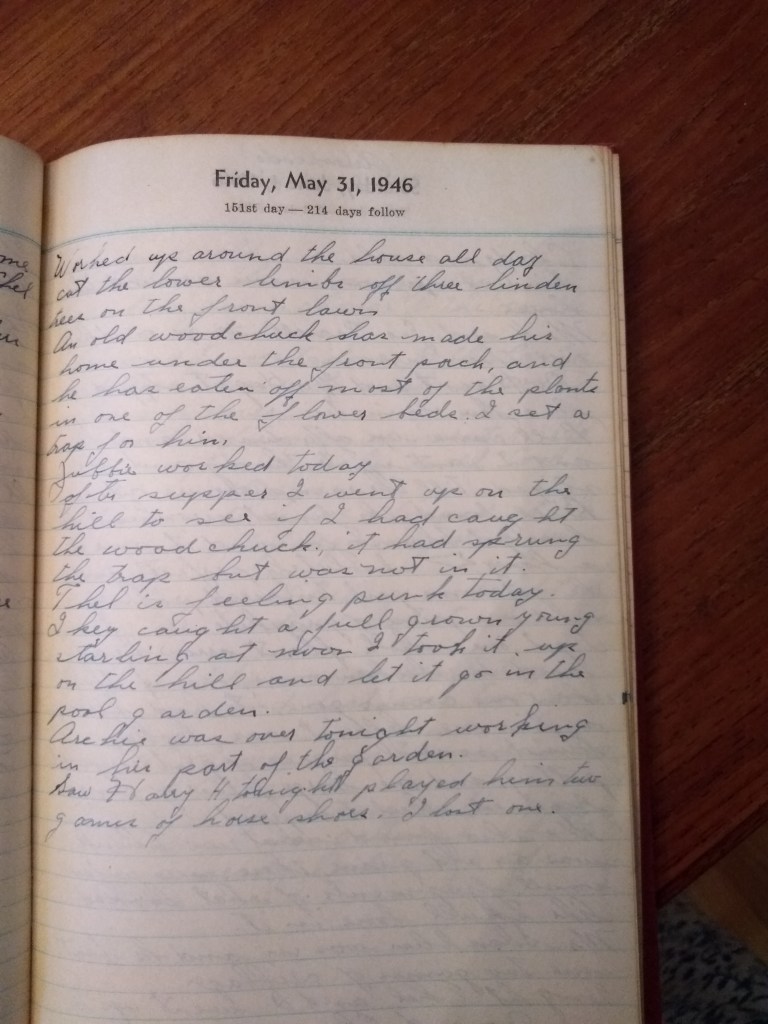 Friday, May 31, 1946
151st day — 214 days follow
Worked up around the house all day
cut the lower limbs off three linden
trees on the front lawn
An old woodchuck has made his
home under the front porch, and
he has eaten off most of the plants
in one of the flower beds. I set a
trap for him.
worked today
After supper I went up on the
hill to see if I had caught
the woodchuck, it had sprung
the trap but was not in it.
Thel is feeling punk today.
Ikey caught a full grown young
starling at noon I took it up
on the hill and let it go in the
pool garden.
Archie was over tonight working
in his part of the garden.
Saw H tonight played him two
games of horse shoes. I lost one.